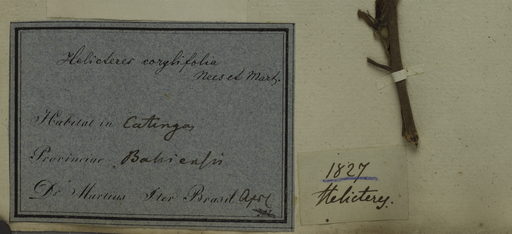 Helicteres corylifolia
Nees et Mart.
Habitat in Catingas
Provinciae Bahiensis
Dr. Martius Iter Brasil.
1827
Helicteres.